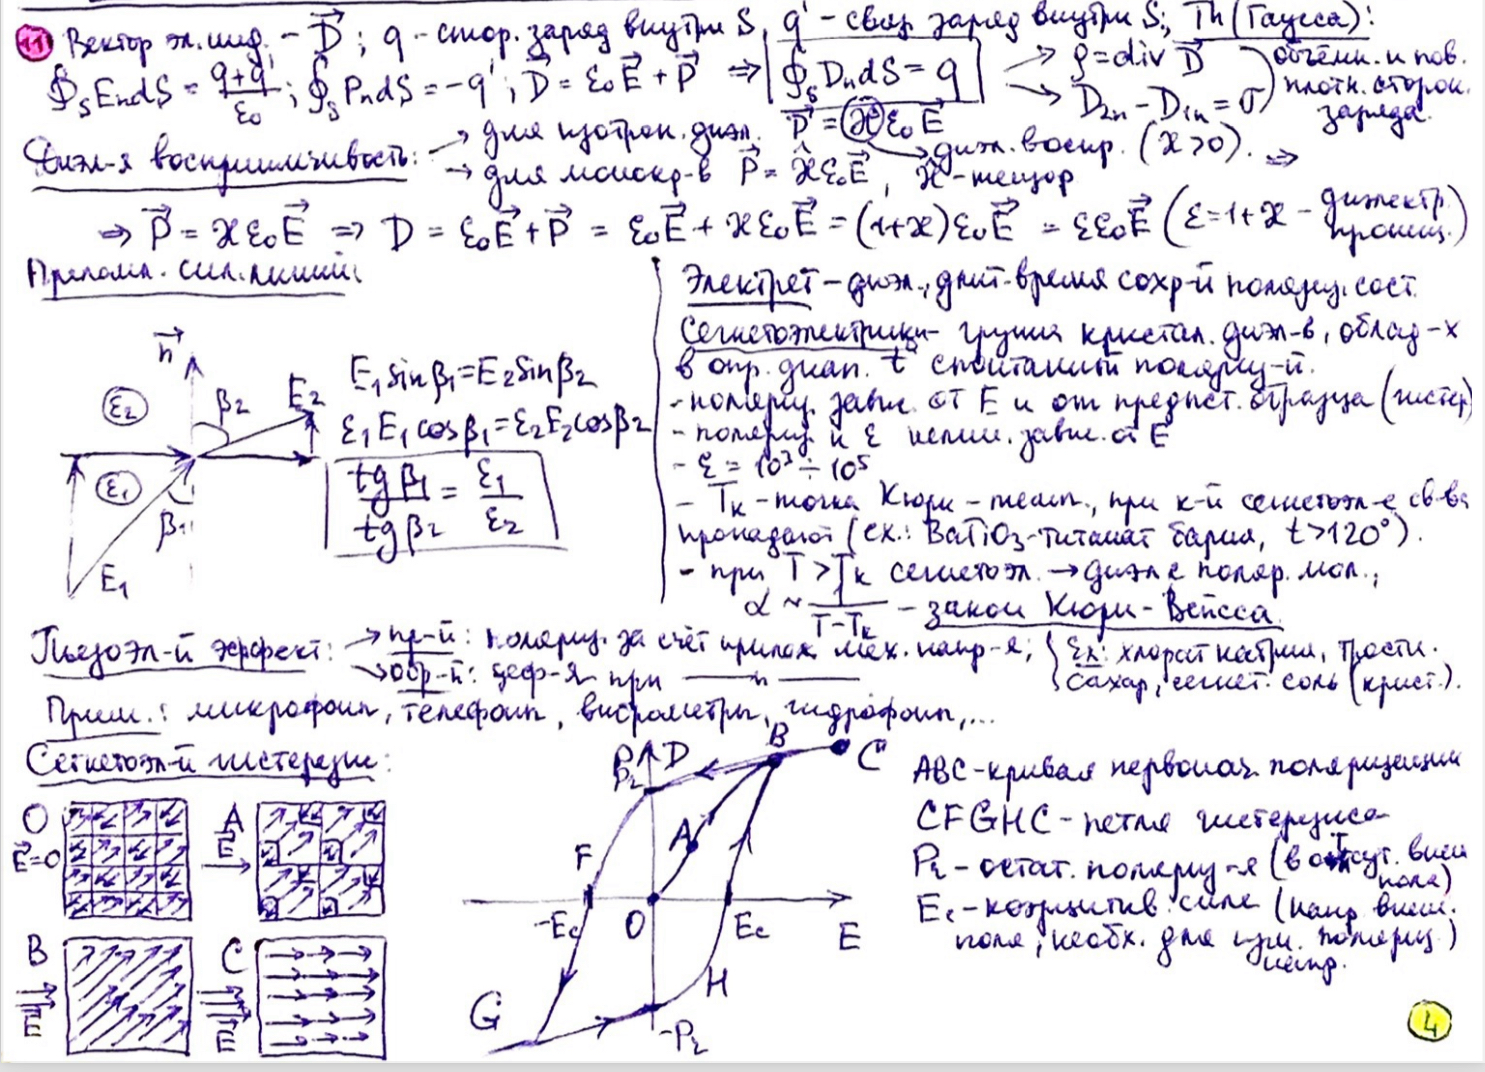 11 Вектор эл. инд. - D⃗; q - стор. заряд внутри S, q' - связ. заряд внутри S; Th (Гаусса):
∮_S E_n dS = (q+q')/ε₀; ∮_S P_n dS = -q'; D⃗ = ε₀E⃗ + P⃗ ⇒ ∮_S D_n dS = q → ρ = div D⃗ → D₂ₙ - D₁ₙ = σ) объёмн. и пов. плотн. сторон. заряда.
Диэл-я восприимчивость: → для изотроп. диэл. P⃗ = ϰε₀E⃗ → диэл. воспр. (ϰ>0). ⇒
→ для монокр-в P⃗ = ϰ̂ε₀E⃗, ϰ̂ - тензор
⇒ P⃗ = ϰε₀E⃗ ⇒ D = ε₀E⃗ + P⃗ = ε₀E⃗ + ϰε₀E⃗ = (1+ϰ)ε₀E⃗ = εε₀E⃗ (ε = 1+ϰ - диэлектр. прониц.)
Преломл. сил. линий:
n⃗
ε₂ β₂ E₂
ε₁ β₁ E₁
E₁ sin β₁ = E₂ sin β₂
ε₁E₁ cos β₁ = ε₂E₂ cos β₂
tg β₁ / tg β₂ = ε₁ / ε₂
Электрет - диэл., длит. время сохр-й поляриз. сост.
Сегнетоэлектрики - группа кристал. диэл-в, облад-х
в опр. диап. t° спонтанной поляриз-й.
- поляриз. завис. от E и от предыст. образца (гистер)
- поляриз. и ε нелин. завис. от E
- ε = 10³ ÷ 10⁵
- Tк - точка Кюри - темп., при к-й сегнетоэл-е св-ва
пропадают (ex.: BaTiO₃ - титанат бария, t > 120°).
- при T > Tк сегнетоэл. → диэл. с поляр. мол.;
α ~ 1/(T - Tк) - закон Кюри-Вейсса
Пьезоэл-й эффект: → пр-й: поляриз. за счёт прилож. мех. напр-я; { Ex: хлорат натрия, тростн.
→ обр-й: деф-я при —— " —— сахар, сегнет. соль (крист.).
Прим.: микрофоны, телефоны, виброметры, гидрофоны,...
Сегнетоэл-й гистерезис:
O E⃗=0
A E⃗
B E⃗
C E⃗
P D B C
Pг
A
F
-Ec O Ec E
H
G
-Pг
ABC - кривая первонач. поляризации
CFGHC - петля гистерезиса
Pг - остат. поляриз-я (в отсут. внеш. поля)
Ec - коэрцитив. сила (напр. внеш.
поля, необх. для поляриз.)